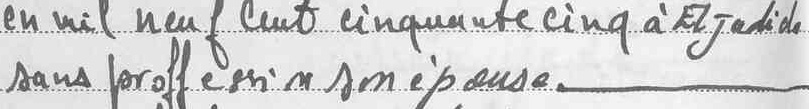 en mil neuf cent cinquante cinq à El jadida
sans proffession son épouse.